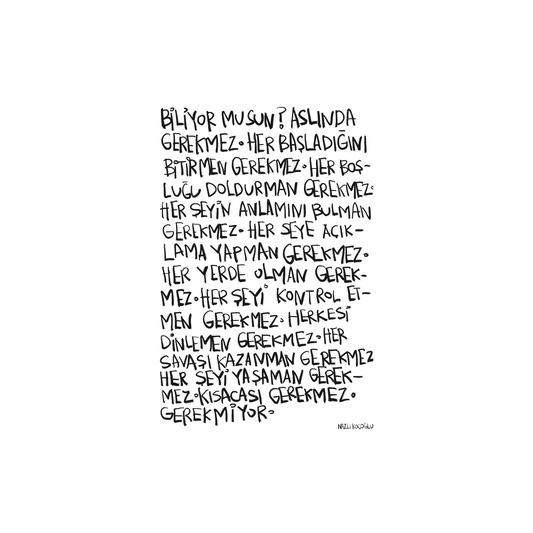 BİLİYOR MUSUN? ASLINDA
GEREKMEZ. HER BAŞLADIĞINI
BİTİRMEN GEREKMEZ. HER BOŞ-
LUĞU DOLDURMAN GEREKMEZ.
HER ŞEYİN ANLAMINI BULMAN
GEREKMEZ. HER ŞEYE AÇIK-
LAMA YAPMAN GEREKMEZ.
HER YERDE OLMAN GEREK-
MEZ. HER ŞEYİ KONTROL ET-
MEN GEREKMEZ. HERKESİ
DİNLEMEN GEREKMEZ. HER
SAVAŞI KAZANMAN GEREKMEZ
HER ŞEYİ YAŞAMAN GEREK-
MEZ. KISACASI GEREKMEZ.
GEREKMİYOR.
NAZLI KOÇOĞLU